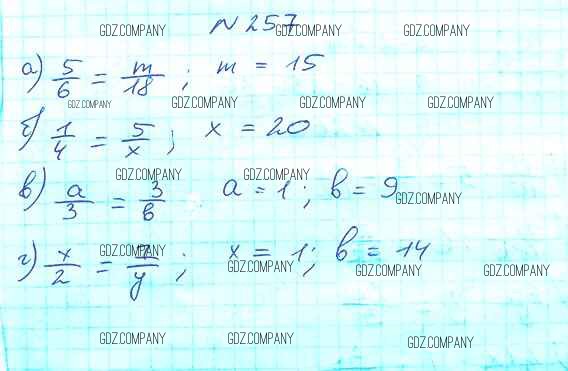 № 257
GDZ.COMPANY GDZ.COMPANY GDZ.COMPANY
а) 5/6 = m/18 ; m = 15
GDZ.COMPANY GDZ.COMPANY GDZ.COMPANY GDZ.COMPANY
б) 1/4 = 5/x ; x = 20
GDZ.COMPANY GDZ.COMPANY
в) a/3 = 3/в a = 1 ; в = 9
GDZ.COMPANY
GDZ.COMPANY
г) x/2 = 7/y ; x = 1 ; в = 14
GDZ.COMPANY GDZ.COMPANY GDZ.COMPANY
GDZ.COMPANY GDZ.COMPANY GDZ.COMPANY